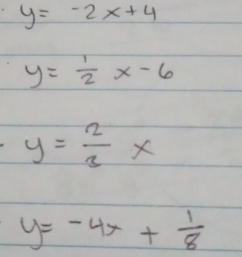 y = -2x+4
y = 1/2 x - 6
y = 2/3 x
y = -4x + 1/8